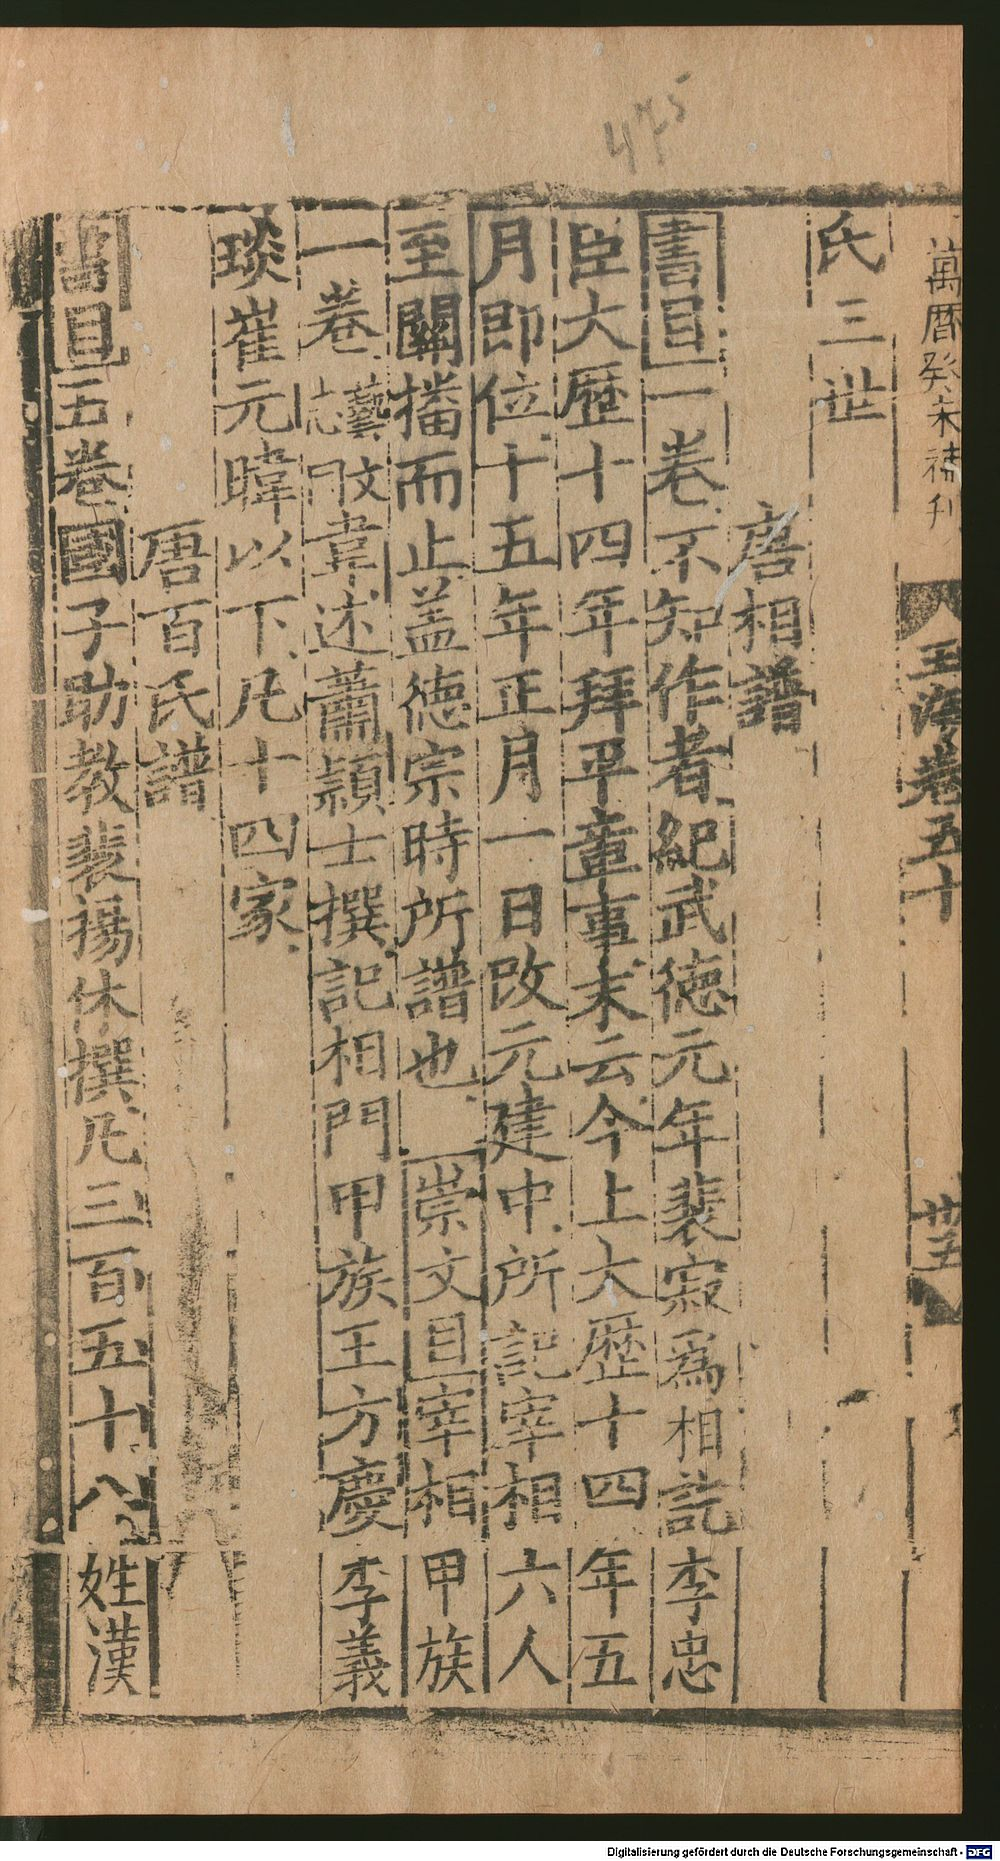 475
萬曆癸未補刊
玉海卷五十
廿五
氏三世
唐相譜
書目一卷不知作者紀武德元年裴寂爲相訖李忠
臣大歷十四年拜平章事末云今上大歷十四年五
月即位十五年正月一日改元建中所記宰相六人
至關播而止蓋德宗時所譜也 崇文目宰相甲族
一卷藝志同韋述蕭穎士撰記相門甲族王方慶李義
琰崔元暐以下凡十四家
唐百氏譜
書目五卷國子助教裴揚休撰凡三百五十八姓漢
Digitalisierung gefördert durch die Deutsche Forschungsgemeinschaft - DFG